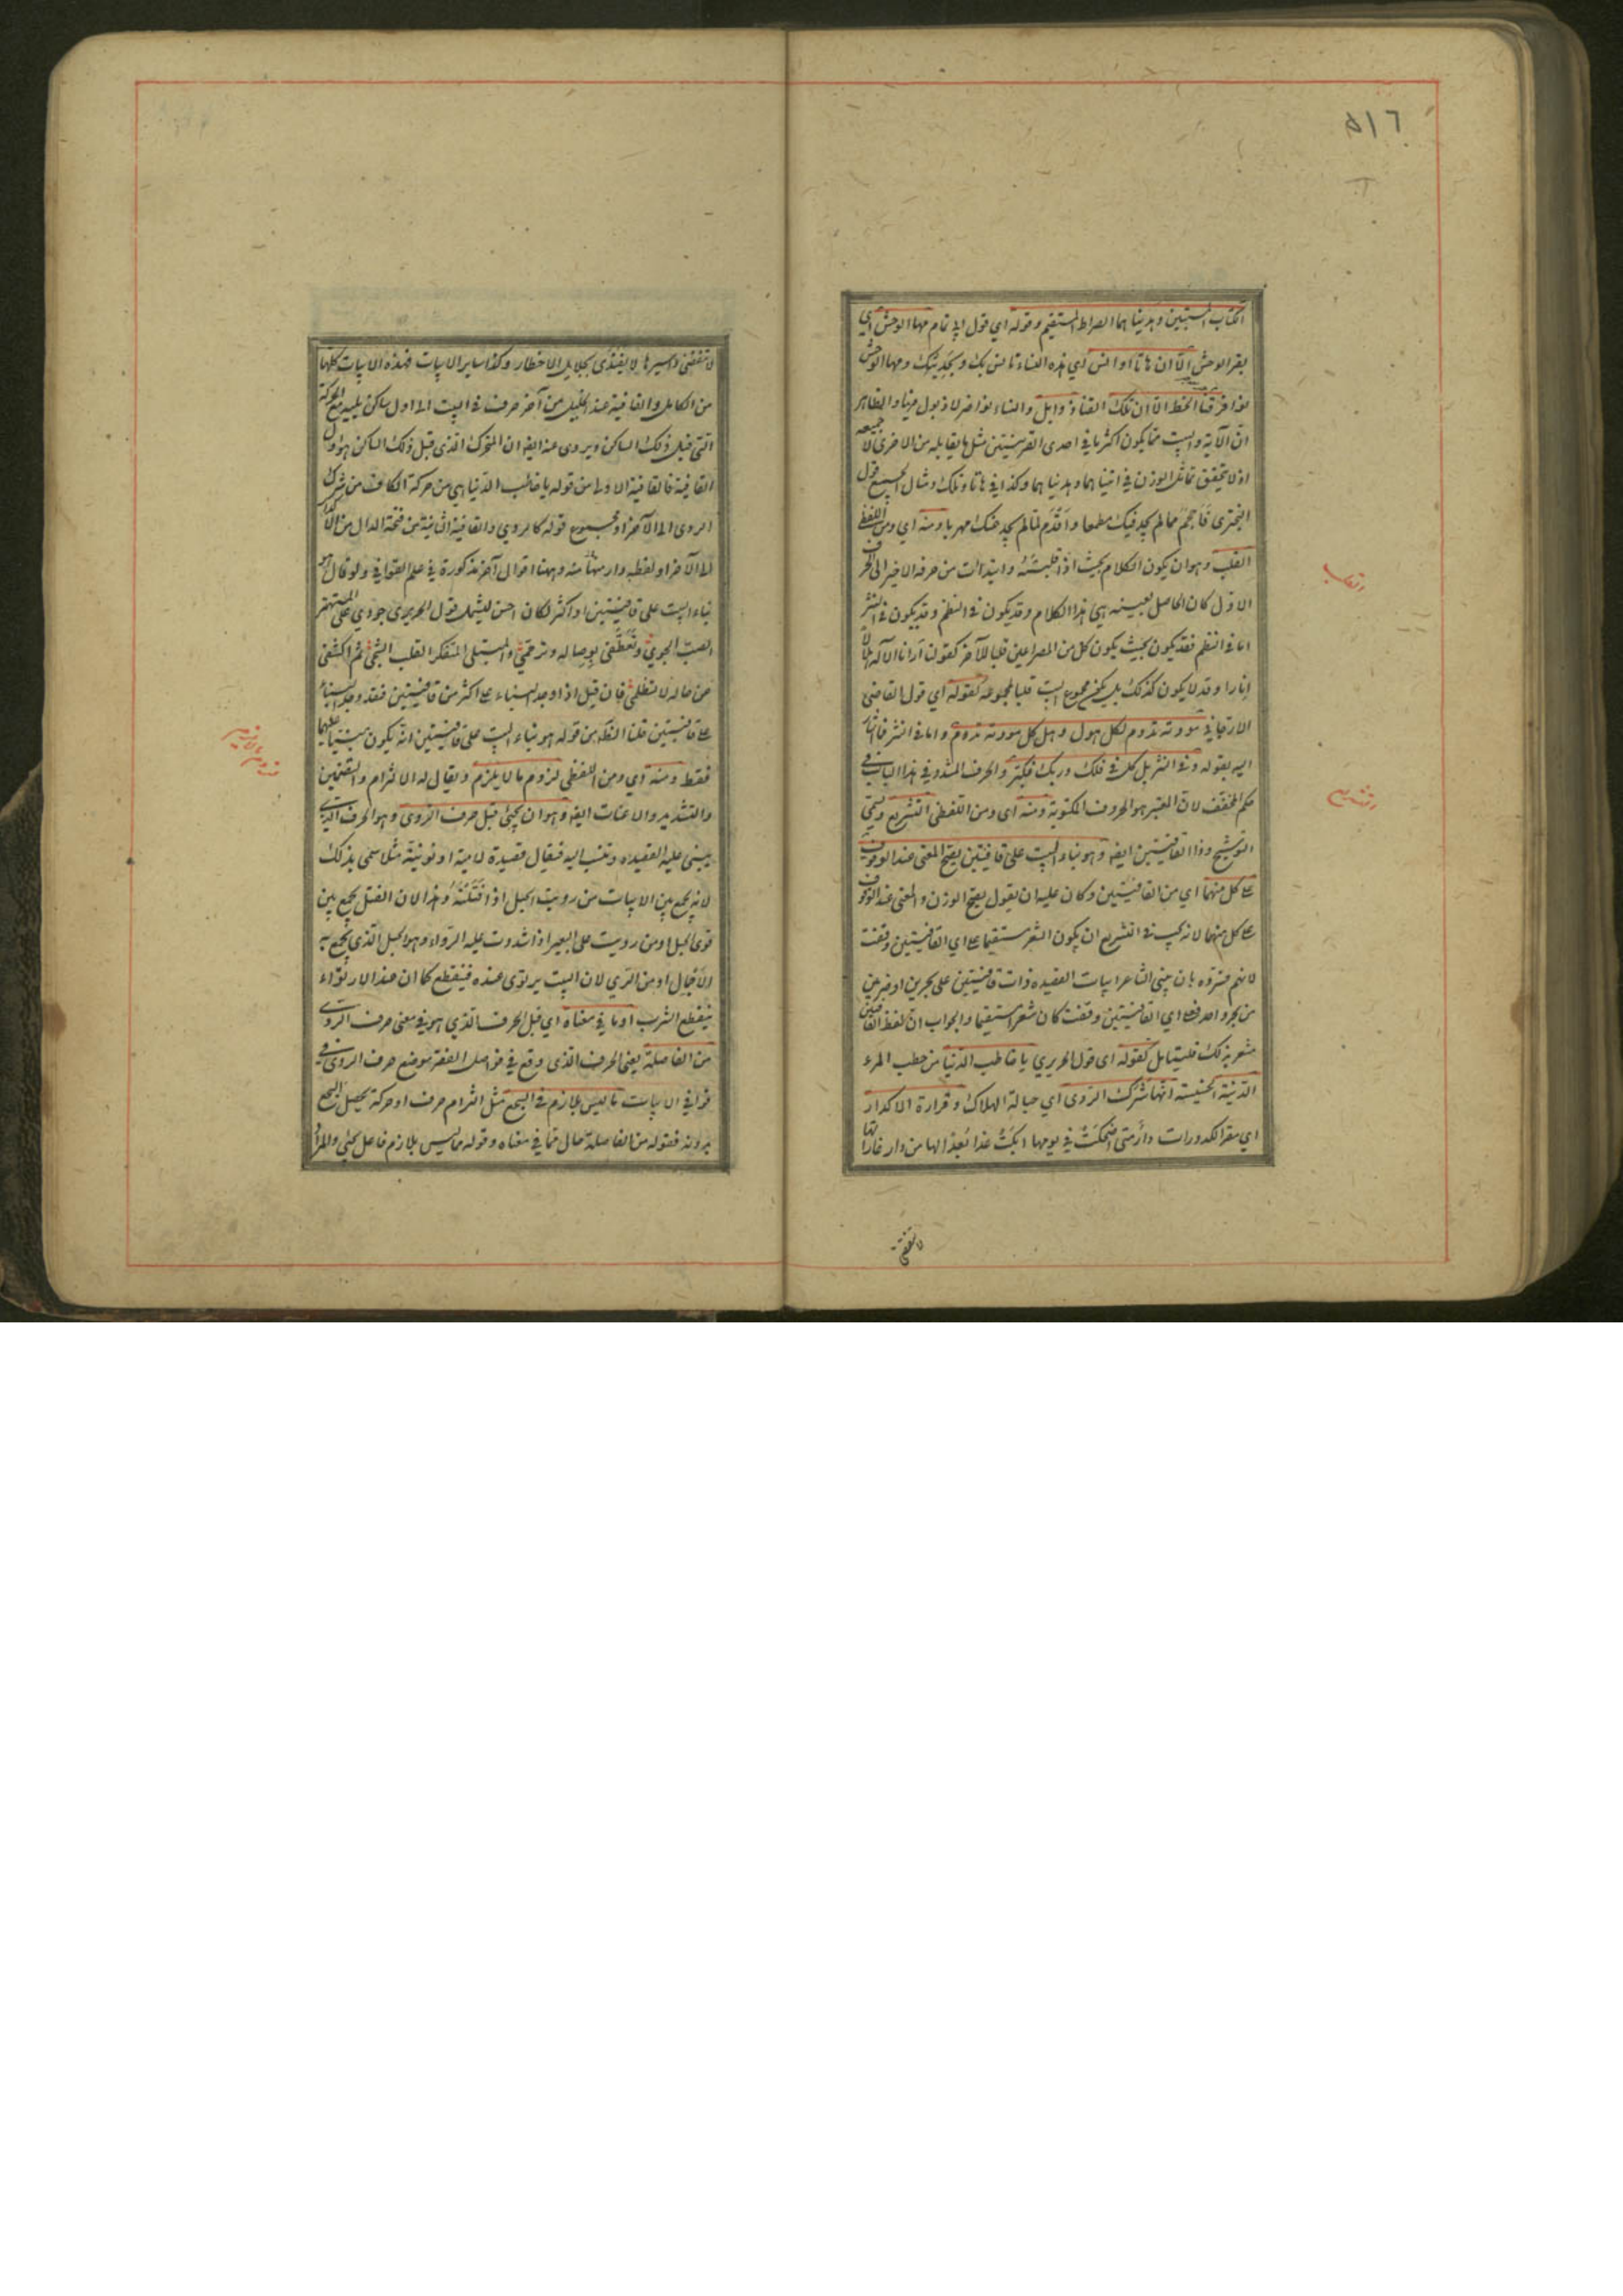 ٥١٦
الكتاب المستبين وهديناهما الصراط المستقيم وقوله اي قول ابي تمام مها الوحش اي
بقر الوحش الا ان هاتا اوانس اي هذه النساء تانس بك وبحديثك ومها الوحش
نوافر قنا الخط الا ان تلك القنا ذوابل والنساء نواضر لا ذبول فيها والظاهر
ان الآية والبيت مما يكون اكثر ما في احدى القرينتين مثل ما يقابله من الاخرى لا جميعه
اذ لا يتحقق تماثل الوزن في اتيناهما وهديناهما وكذا في هاتا وتلك ومثال الجميع قول
البحتري فاحجم لما لم يجد فيك مطمعا واقدم لما لم يجد عنك مهربا ومنه اي ومن اللفظي
القلب وهو ان يكون الكلام بحيث اذا قلبته وابتدأت من حرفه الاخير الى الحرف
الاول كان الحاصل بعينه هي هذا الكلام وقد يكون في النظم وقد يكون في النثر
اما في النظم فقد يكون بحيث يكون كل من المصراعين قلبا للآخر كقولنا ارانا الاله هلالا
انارا وقد لا يكون كذلك بل يكون مجموع البيت قلبا لمجموعه كقوله اي قول القاضي
الارجاني مودته تدوم لكل هول وهل كل مودته تدوم واما في النثر فاشار
اليه بقوله وفي التنزيل كل في فلك وربك فكبر والحرف المشدد في هذا الباب في
حكم المخفف لان المعتبر هو الحروف المكتوبة ومنه اي ومن اللفظي التشريع ويسمى
التوشيح وذا القافيتين ايضا وهو بناء البيت على قافيتين يصح المعنى عند الوقوف
على كل منهما اي من القافيتين وكان عليه ان يقول يصح الوزن والمعنى عند الوقوف
على كل منهما لانه يجب في التشريع ان يكون الشعر مستقيما على اي القافيتين وقفت
لانهم فسروه بان يبني الشاعر ابيات القصيدة ذات قافيتين على بحرين او ضربين
من بحر واحد فعلى اي القافيتين وقفت كان شعرا مستقيما والجواب ان لفظ القافيتين
مشعر بذلك فليتأمل كقوله اي قول الحريري يا خاطب الدنيا من خطب المرء
الدنية الخسيسة انها شرك الردى اي حبالة الهلاك وقرارة الاكدار
اي مقر الكدورات دار متى اضحكت في يومها ابكت غدا بعدا لها من دار غاراتها
لا تنقضي
القلب
التشريع
لا تنقضي واسيرها لا يفتدى بجلايل الاخطار وكذا ساير الابيات فهذه الابيات كلها
من الكامل والقافية عند الخليل من آخر حرف في البيت الى اول ساكن يليه مع الحركة
التي قبل ذلك الساكن ويروى عنه ايضا ان المتحرك الذي قبل ذلك الساكن هو اول
القافية فالقافية الاولى من قوله يا خاطب الدنيا هي من حركة الكاف من شرك
الردى الى الآخر او مجموع قوله كالردى والقافية الثانية من فتحة الدال من الاكدار
الى الآخر او لفظه دار منها منه وههنا اقوال آخر مذكورة في علم القوافي ولو قال هو
بناء البيت على قافيتين او اكثر لكان احسن ليشمل قول الحريري جودي على المستهتر
الصب الجوي وتعطفي بوصاله وترحمي والمبتلى المتفكر القلب الشجي ثم اكشفي
عن حاله لا تظلمي فان قيل اذا وجد البناء على اكثر من قافيتين فقد وجد البناء
على قافيتين قلنا الظاهر من قوله هو بناء البيت على قافيتين انه يكون مبنيا عليهما
فقط ومنه اي ومن اللفظي لزوم ما لا يلزم ويقال له الالتزام والتضمين
والتشديد والاعنات ايضا وهو ان يجئ قبل حرف الروي وهو الحرف الذي
يبنى عليه القصيدة وتنسب اليه فيقال قصيدة لامية او نونية مثلا سمي بذلك
لانه يجمع بين الابيات من رويت الحبل اذا فتلته وهذا لان الفتل يجمع بين
قوى الحبل او من رويت على البعير اذا شددت عليه الرواء وهو الحبل الذي يجمع به
الاحمال او من الري لان البيت يرتوي عنده فينقطع كما ان عند الارتواء
ينقطع الشرب او ما في معناه اي قبل الحرف الذي هو في معنى حرف الروي
من الفاصلة يعني الحرف الذي وقع في فواصل الفقر موضع حرف الروي في
قوافي الابيات ما ليس بلازم في السجع مثل التزام حرف او حركة يحصل السجع
بدونه فقوله من الفاصلة حال مما في معناه وقوله ما ليس بلازم فاعل يجئ والمراد